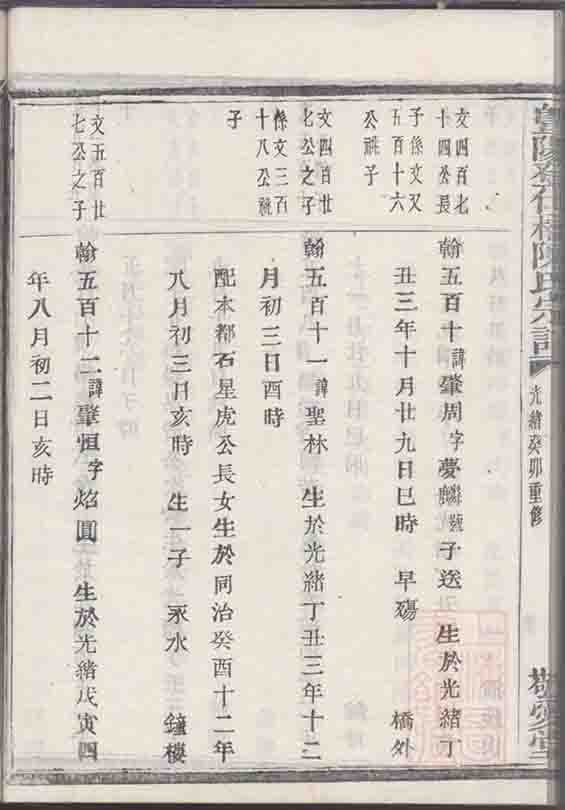 陳氏宗譜
光緒癸卯重修
敬愛堂
文四百七
十四公長
子係文又
五百十六
公祧子
翰五百十諱肇周字夢麟號子送 生於光緒丁
丑三年十月廿九日巳時 早殤 橋外
文四百廿
七公之子
係文三百
十八公祧
子
翰五百十一諱聖林 生於光緒丁丑三年十二
月初三日酉時
配本都石星虎公長女生於同治癸酉十二年
八月初三日亥時 生一子 永水 鐘樓
文五百廿
七公之子
翰五百十二諱肇恒字焰圓 生於光緒戊寅四
年八月初二日亥時